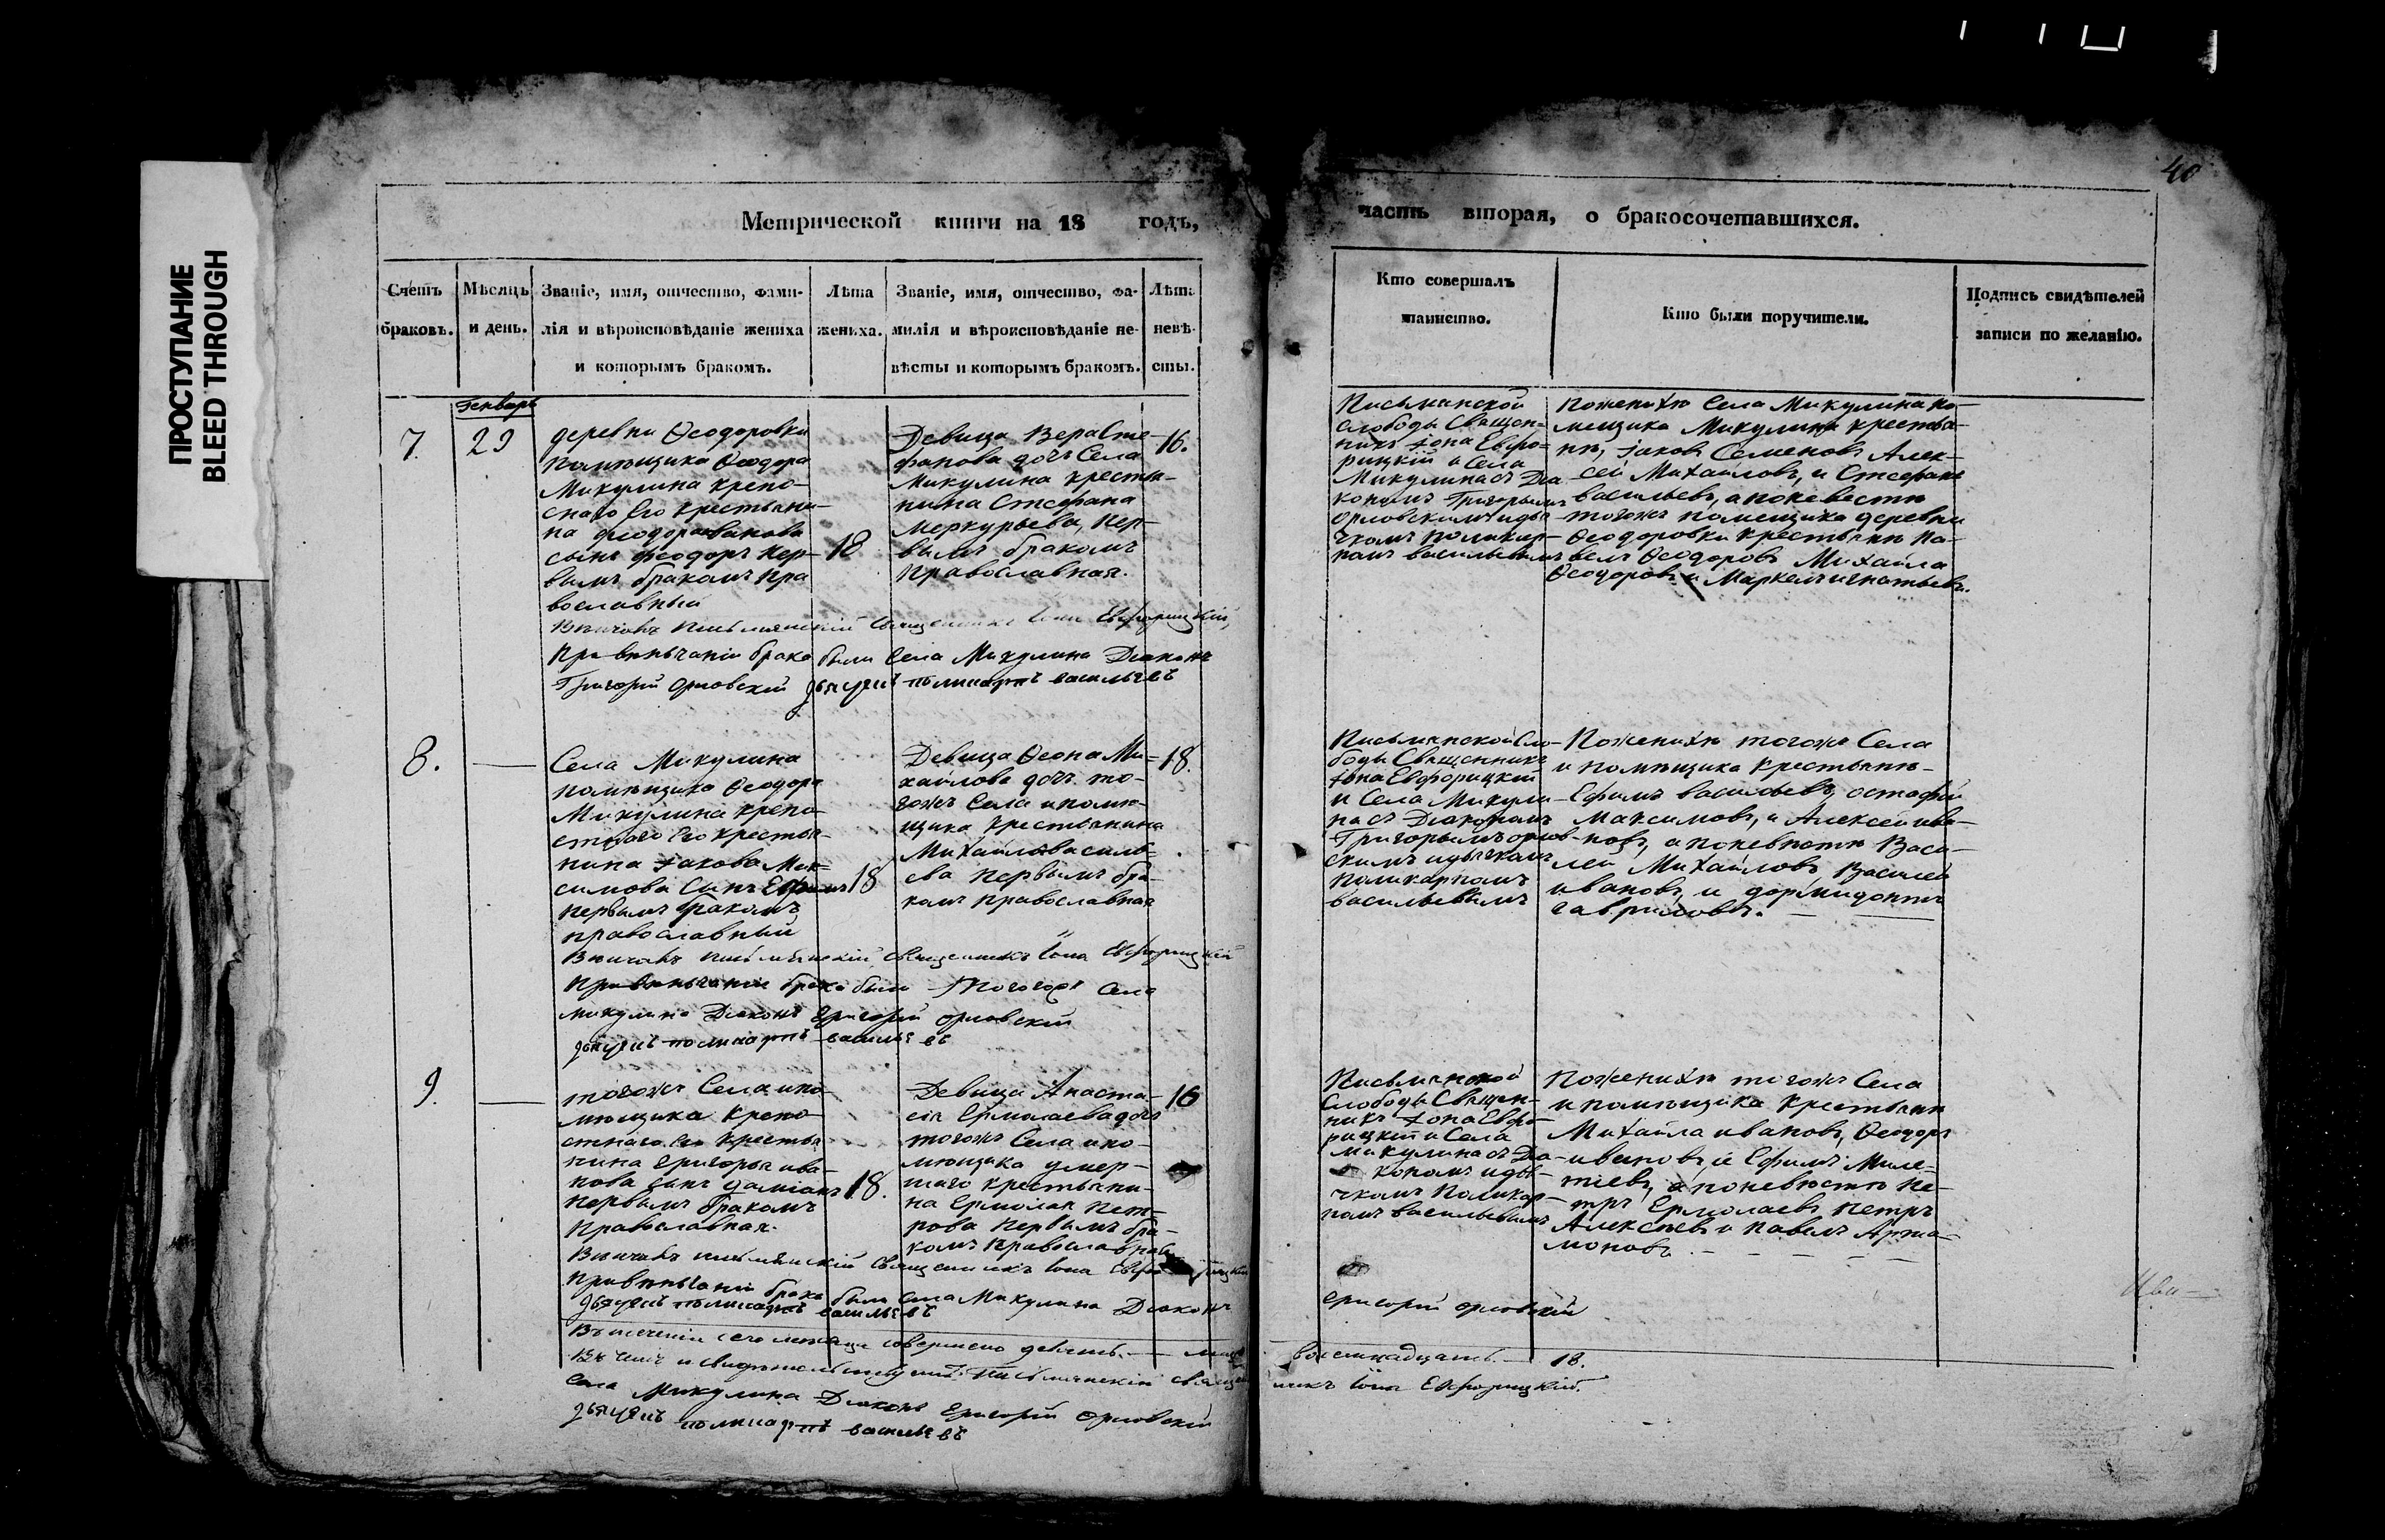 ПРОСТУПАНИЕ
BLEED THROUGH
40
Метрической книги на 18 годъ,
часть вторая, о бракосочетавшихся.
Счетъ браковъ.
Мѣсяцъ и день.
Званіе, имя, отчество, фами-
лія и вѣроисповѣданіе жениха
и которымъ бракомъ.
Лѣта
жениха.
Званіе, имя, отчество, фа-
милія и вѣроисповѣданіе не-
вѣсты и которымъ бракомъ.
Лѣта
невѣ-
сты.
Кто совершалъ
таинство.
Кто были поручители.
Подпись свидѣтелей
записи по желанію.
Генварь
7.
29
деревни Ѳеодоровки
помѣщика Ѳеодора
Микулина крепо-
снаго Его крестьяни-
на Феодора Иванова
сынъ Феодоръ пер-
вымъ бракомъ пра
вославный
18
Девица Вера Сте-
фанова дочь Села
Микулина крестья-
нина Стефана
Меркурьева, пер-
вымъ бракомъ
православная.
16.
Письмянской
слободы Священ-
никъ Іона Евфо-
рицкій и Села
Микулина съ Диа
кономъ Григорьемъ
Орловскимъ и дья-
чкомъ Поликар-
помъ Васильевымъ
Пожениху Села Микулина по-
мещика Микулина крестья-
не, Іаковъ Семеновъ Алек-
сей Михайловъ, и Стефанъ
Васильевъ, а поневесте
тогожъ помещика деревни
Ѳеодоровки крестьяне Па-
велъ Ѳеодоровъ Михайла
Ѳеодоровъ и Маркелъ Игнатьевъ.
Вѣнчалъ Письмянскій Священникъ Іона Евфорицкій,
При вѣнчаніи брака были Села Микулина Диаконъ
Григорій Орловскій дьячекъ Поликарпъ Васильевъ
8.
Села Микулина
помѣщика Ѳеодора
Микулина крепо
стнаго Его крестья-
нина Іакова Мак-
симова Сынъ Ефимъ
первымъ бракомъ
православный
18
Девица Ѳеона Ми-
хайлова дочь то-
гожъ Села и помѣ-
щика крестьянина
Михайла Василь-
ева первымъ бра-
комъ православная
18.
Письмянской Сло-
боды Священникъ
Іона Евфорицкій
и Села Микули-
на съ Диакономъ
Григорьемъ Орлов-
скимъ и дьячкомъ
Поликарпомъ
Васильевымъ
Пожениху тогожъ Села
и помѣщика крестьяне-
Ефимъ Васильевъ, Остафей
Максимовъ, и Алексей Ива-
новъ, а поневѣсте Васи-
лей Михайловъ, Василей
Ивановъ, и Дормидонтъ
Гавриловъ.
Вѣнчалъ Письмянскій Священникъ Іона Евфорицкій
При вѣнчаніи брака были тогожъ Села
Микулина Диаконъ Григорій Орловскій
дьячекъ Поликарпъ Васильевъ
9.
тогожъ Села и по
мѣщика крепо-
стнаго Его крестья
нина Григорья Ива-
нова сынъ Дамианъ
первымъ бракомъ
Православная.
18.
Девица Анаста-
сія Ермолаева дочь
тогожъ Села и по-
мѣщика умер-
шаго крестьяни-
на Ермолая Пет-
рова первымъ бра-
комъ православная
16
Письмянской
Слободы Священ-
никъ Іона Евфо-
рицкій и Села
Микулина съ Диа-
кономъ и дья-
чкомъ Поликар-
помъ Васильевымъ
Пожениху тогожъ Села
и помѣщика крестьяне
Михайла Ивановъ, Ѳеодоръ
Ивановъ и Ефимъ Миле-
тиевъ, а поневѣсте Пе-
тръ Ермолаевъ Петръ
Алексѣевъ и Павелъ Арта-
моновъ.
Вѣнчалъ Письмянскій Священникъ Іона Евфорицкій
При вѣнчаніи брака были Села Микулина Диаконъ
Григорій Орловскій
дьячекъ Поликарпъ Васильевъ
Въ теченіи сего месяца совершено девять.
восемнадцать. 18.
Въ чемъ и свидѣтельствуемъ Письмянскій Священ
никъ Іона Евфорицкій.
Села Микулина Диаконъ Григорій Орловскій
дьячекъ Поликарпъ Васильевъ